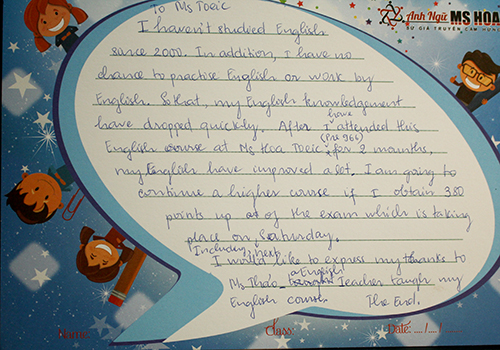 To Ms Toeic
Anh Ngữ MS HOA
SỨ GIẢ TRUYỀN CẢM HỨNG
I haven't studied English
since 2000. In addition, I have no
chance to practise English or work by
English. So that, my English knowledgement
have dropped quickly. After I have attended this
English course at Ms Hoa Toeic (Pre 966) for 2 months,
my English have improved a lot. I am going to
continue a higher course if I obtain 380
points up at of the exam which is taking
place on next Saturday.
Including, I would like to express my thanks to
Ms Thảo - a English Teacher taugh my
English course. The End.
Name:
Class:
Date: ..../..../....